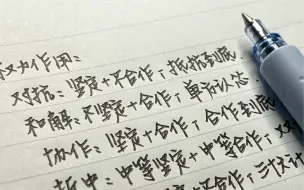 权力作用:
对抗:坚定+不合作,抵抗到底
和解:不坚定+合作,单方认怂
协作:坚定+合作,合作到底
折中:中等坚定+中等合作,双
合作,三方计